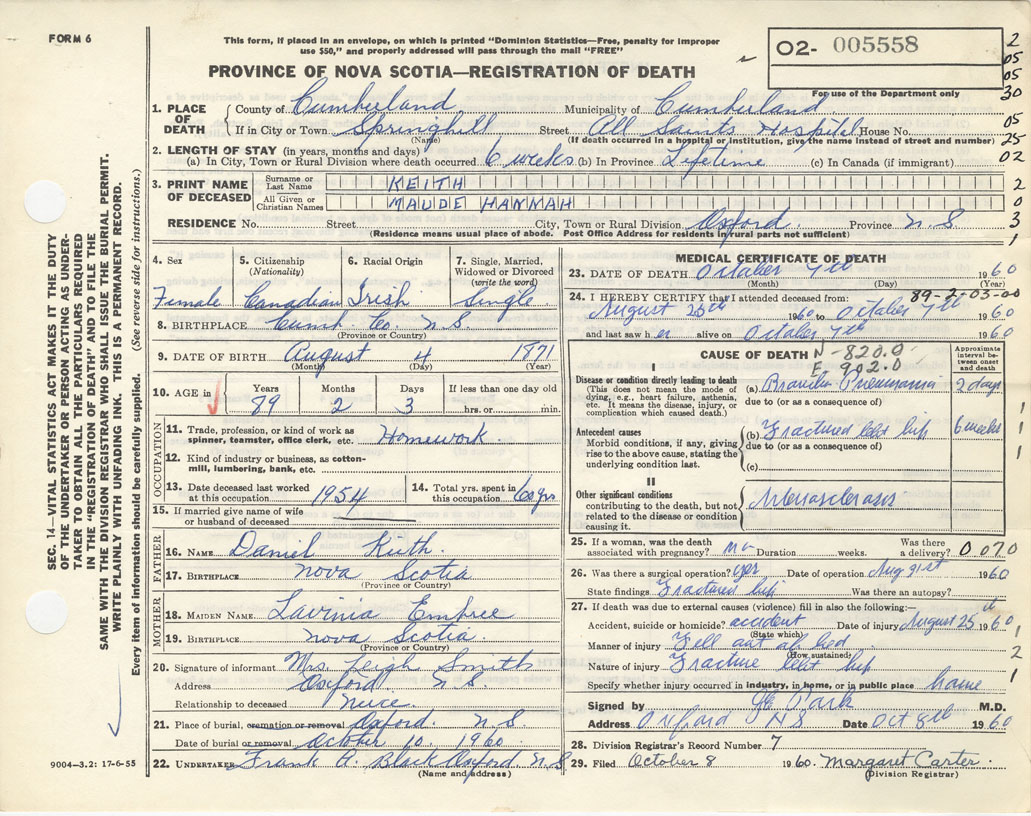 FORM 6
This form, if placed in an envelope, on which is printed "Dominion Statistics—Free, penalty for improper
use $50," and properly addressed will pass through the mail "FREE"
PROVINCE OF NOVA SCOTIA—REGISTRATION OF DEATH
02- 005558
For use of the Department only
2
05
05
30
05
25
02
2
0
3
1
1. PLACE OF DEATH County of Cumberland Municipality of Cumberland
If in City or Town Springhill Street All Saints Hospital House No.
(Name) (If death occurred in a hospital or institution, give the name instead of street and number)
2. LENGTH OF STAY (in years, months and days)
(a) In City, Town or Rural Division where death occurred 6 weeks (b) In Province Lifetime (c) In Canada (if immigrant)
3. PRINT NAME OF DECEASED
Surname or Last Name KEITH
All Given or Christian Names MAUDE HANNAH
RESIDENCE No. Street City, Town or Rural Division Oxford Province N.S.
(Residence means usual place of abode. Post Office Address for residents in rural parts not sufficient)
4. Sex Female
5. Citizenship (Nationality) Canadian
6. Racial Origin Irish
7. Single, Married, Widowed or Divorced (write the word) Single
8. BIRTHPLACE Cumb. Co. N.S.
(Province or Country)
9. DATE OF BIRTH August 4 1871
(Month) (Day) (Year)
10. AGE in Years 89 Months 2 Days 3 If less than one day old hrs. or min.
OCCUPATION
11. Trade, profession, or kind of work as spinner, teamster, office clerk, etc. Homework.
12. Kind of industry or business, as cotton-mill, lumbering, bank, etc.
13. Date deceased last worked at this occupation 1954
14. Total yrs. spent in this occupation 60 yrs
15. If married give name of wife or husband of deceased
FATHER
16. NAME Daniel Keith.
17. BIRTHPLACE Nova Scotia
(Province or Country)
MOTHER
18. MAIDEN NAME Lavinia Embree
19. BIRTHPLACE Nova Scotia.
(Province or Country)
20. Signature of informant Mrs. Leigh Smith
Address Oxford N.S.
Relationship to deceased Niece.
21. Place of burial, cremation or removal Oxford. N.S.
Date of burial or removal October 10. 1960
22. UNDERTAKER Frank A. Black Oxford N.S
(Name and address)
MEDICAL CERTIFICATE OF DEATH
23. DATE OF DEATH October 7th 1960
(Month) (Day) (Year)
89-2-03-00
24. I HEREBY CERTIFY that I attended deceased from:
August 25th 1960 to October 7th 1960
and last saw her alive on October 7th 1960
CAUSE OF DEATH N-820.0
E-902.0
Approximate interval between onset and death
I
Disease or condition directly leading to death
(This does not mean the mode of dying, e.g., heart failure, asthenia, etc. It means the disease, injury, or complication which caused death.)
(a) Broncho Pneumonia 2 days
due to (or as a consequence of)
Antecedent causes
Morbid conditions, if any, giving rise to the above cause, stating the underlying condition last.
(b) Fractured left hip 6 weeks
due to (or as a consequence of)
(c)
1
1
1
II
Other significant conditions
contributing to the death, but not related to the disease or condition causing it.
Arteriosclerosis
25. If a woman, was the death associated with pregnancy? no Duration weeks. Was there a delivery? 0 070
26. Was there a surgical operation? yes Date of operation Aug 31st 1960
State findings Fractured hip Was there an autopsy?
27. If death was due to external causes (violence) fill in also the following:
Accident, suicide or homicide? accident Date of injury August 25 1960
(State which)
Manner of injury Fell out of bed
(How sustained)
Nature of injury Fracture left hip
Specify whether injury occurred in industry, in home, or in public place home
1
2
1
Signed by Park M.D.
Address Oxford N S Date Oct 8th 1960
28. Division Registrar's Record Number 7
29. Filed October 8 1960. Margaret Carter.
(Division Registrar)
SEC. 14—VITAL STATISTICS ACT MAKES IT THE DUTY
OF THE UNDERTAKER OR PERSON ACTING AS UNDER-
TAKER TO OBTAIN ALL THE PARTICULARS REQUIRED
IN THE "REGISTRATION OF DEATH" AND TO FILE THE
SAME WITH THE DIVISION REGISTRAR WHO SHALL ISSUE THE BURIAL PERMIT.
WRITE PLAINLY WITH UNFADING INK. THIS IS A PERMANENT RECORD.
Every item of information should be carefully supplied. (See reverse side for instructions.)
9004-3.2: 17-6-55